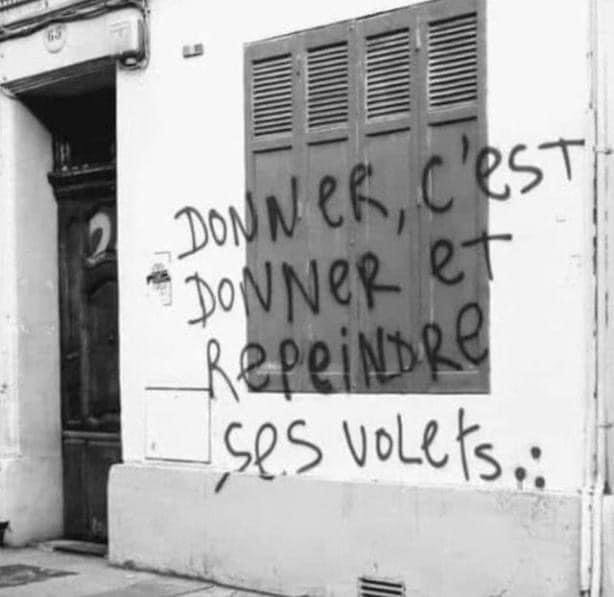 65
2
DONNER, C'EST
DONNER ET
REPEINDRE
SES VOLETS..: